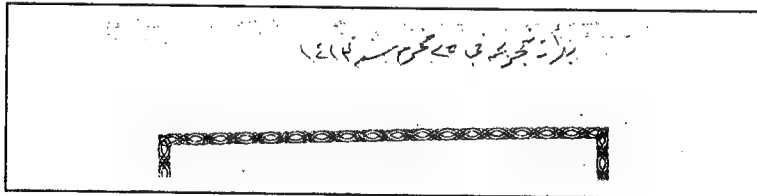 بدأت تحريره في ٢٥ محرم سنة ١٤١٣